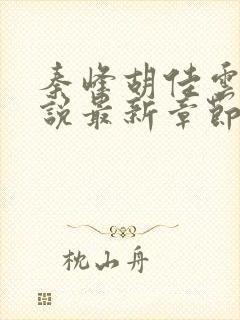 秦峰胡佳雲
說最新章節
枕山舟